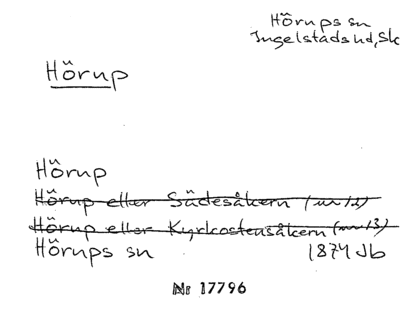 Hörups sn
Ingelstads hd, Sk
Hörup
Hörup
Hörup eller Sädesåkern (nr 12)
Hörup eller Kyrkostensåkern (nr 13)
Hörups sn 1874 Jb
Nr 17796